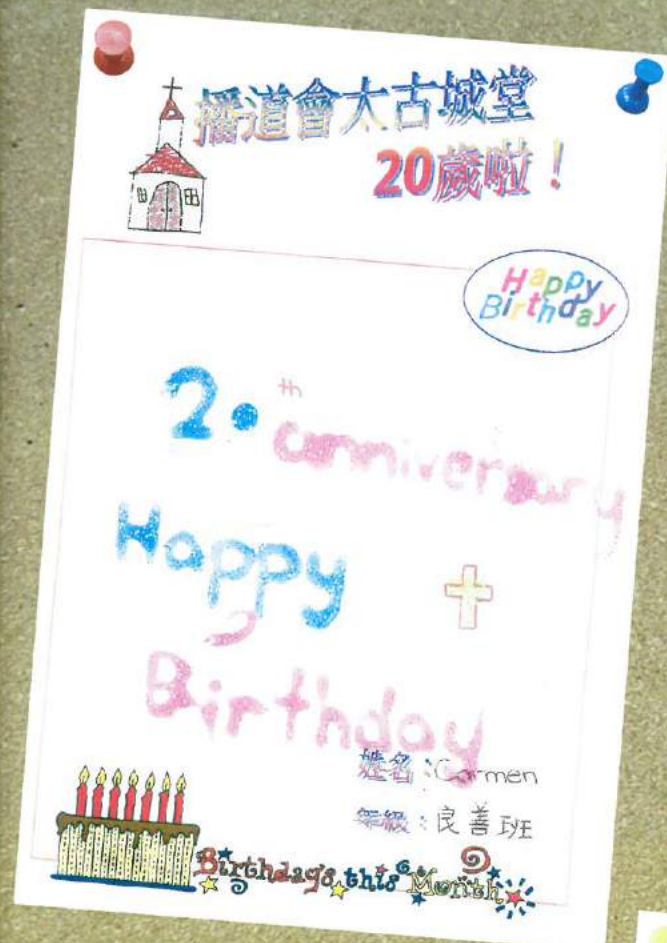 播道會太古城堂
20歲啦！
Happy
Birthday
20th
anniversary
Happy
Birthday
姓名：Carmen
年級：良善班
Birthdays this Month